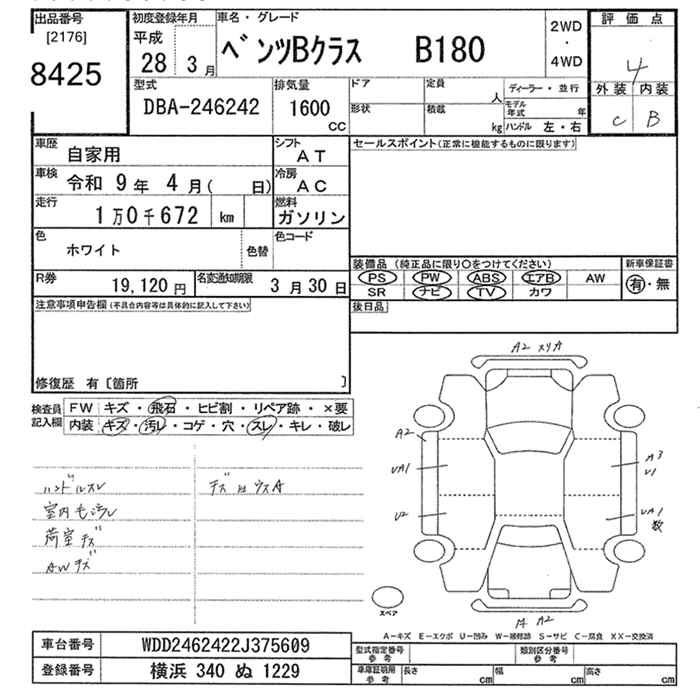 出品番号
[2176]
8425
初度登録年月
平成
28 3月
車名・グレード
ベンツBクラス B180
2WD
・
4WD
評価点
4
外装 内装
C B
型式
DBA-246242
排気量
1600
CC
ドア
形状
定員
人
積載
kg
ディーラー・並行
モデル年式 年
ハンドル 左・右
車歴
自家用
シフト
AT
車検
令和 9年 4月( 日)
冷房
AC
走行
1万0千672 km
燃料
ガソリン
色
ホワイト
色替
色コード
R券
19,120 円
名変通知期限
3月30日
セールスポイント(正常に機能するものに限ります)
装備品 (純正品に限り〇をつけてください)
新車保証書
PS PW ABS エアB AW
有・無
SR ナビ TV カワ
後日品
注意事項申告欄(不具合内容等は具体的に記入して下さい)
修復歴 有〔箇所 〕
検査員
記入欄
FW キズ・飛石・ヒビ割・リペア跡・×要
内装 キズ・汚レ・コゲ・穴・スレ・キレ・破レ
ハンドルスレ
室内モヨゴレ
荷室キズ
AWキズ
A2 スリキ
A2
UA1
U2
A3
U1
UA1
数
A2
スペア
A-キズ E-エクボ U-凹み W-補修跡 S-サビ C-腐食 XX-交換済
車台番号
WDD2462422J375609
登録番号
横浜 340 ぬ 1229
型式指定番号
参考
類別区分番号
参考
車庫証明用
参考
長さ cm
幅 cm
高さ cm